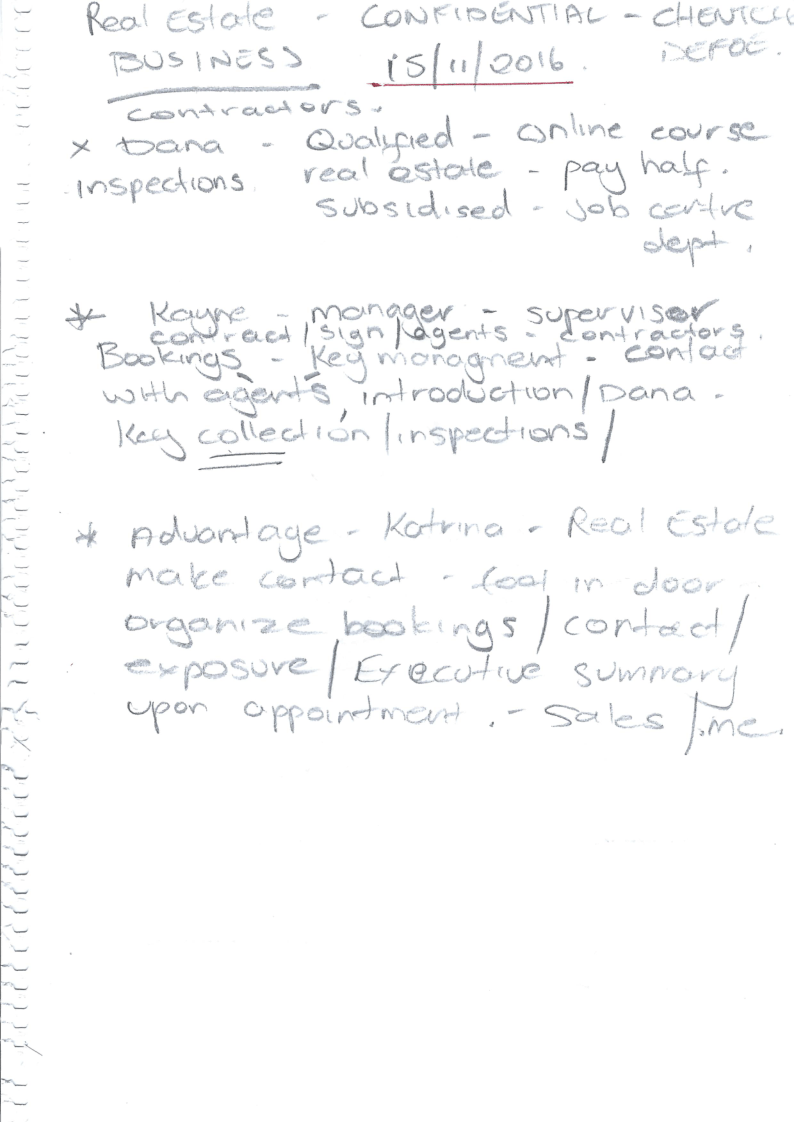 Real Estate - CONFIDENTIAL -
BUSINESS 15/11/2016. DEFOE.
contractors.
x Dana - Qualified - Online course
inspections real estate - pay half.
subsidised - job centre
dept.
* Kayne - manager - supervisor
contract/sign/agents - contractors.
Bookings - Key managment - contact
with agents, introduction/Dana -
Key collection/inspections/
* Advantage - Katrina - Real Estate
make contact - foot in door
organize bookings/contact/
exposure/Executive summary
upon appointment. - Sales/me.